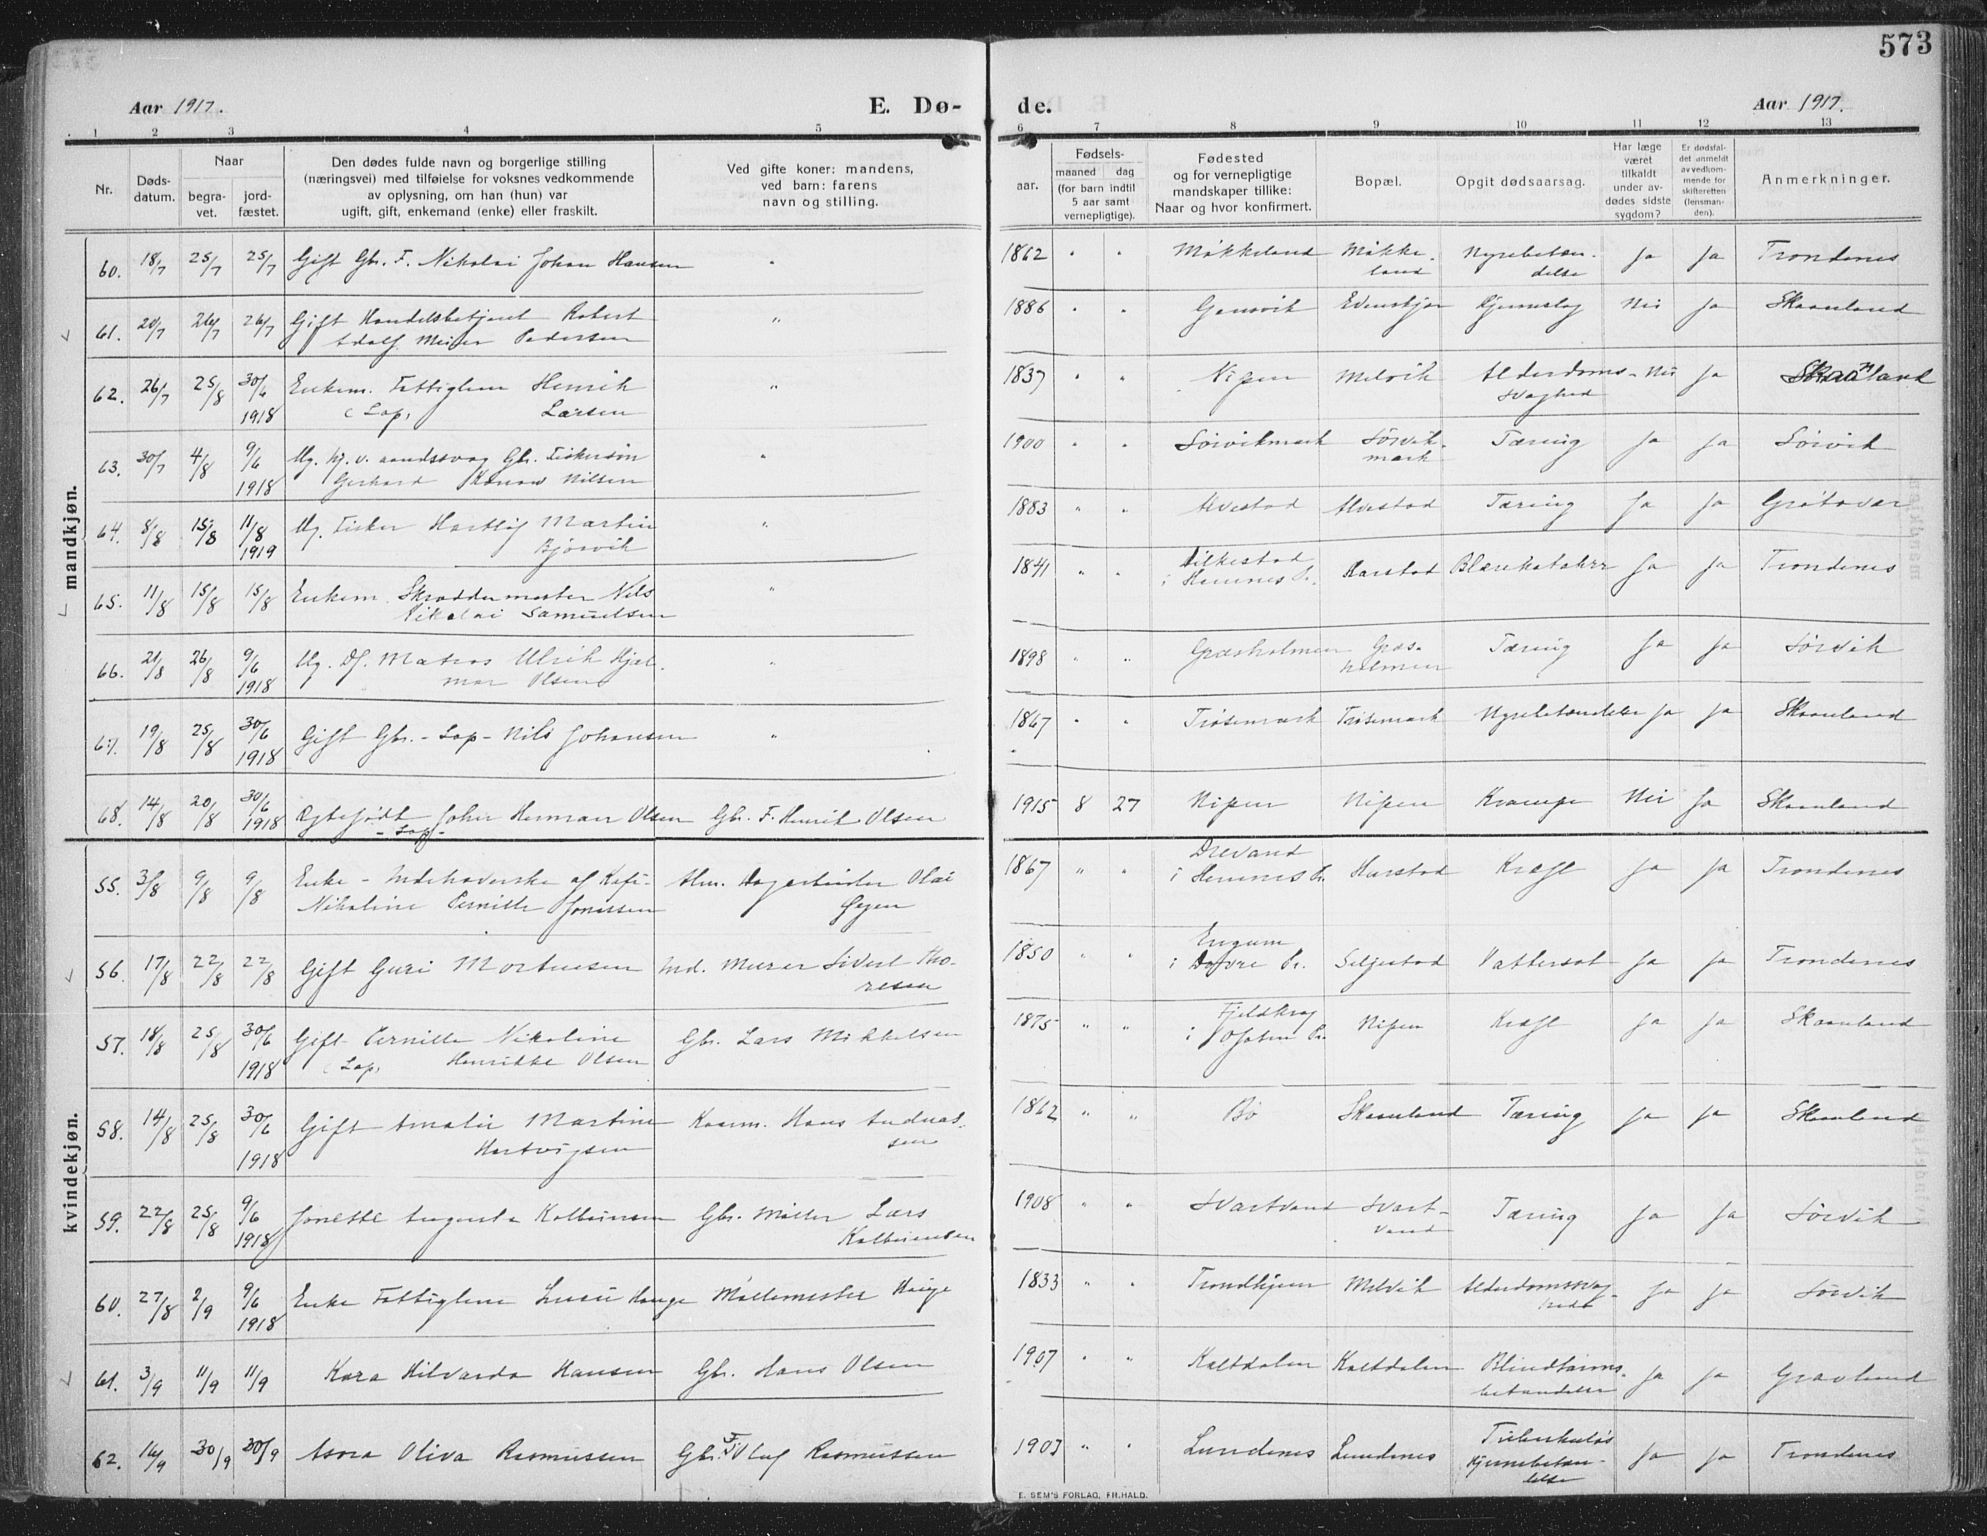 573
Aar 1917.
E. Dø-
de.
Aar 1917.
1 2 3 4 5 6 7 8 9 10 11 12 13
Nr.
Døds-
datum.
Naar
begra-
vet.
jord-
fæstet.
Den dødes fulde navn og borgerlige stilling
(næringsvei) med tilføielse for voksnes vedkommende
av oplysning, om han (hun) var
ugift, gift, enkemand (enke) eller fraskilt.
Ved gifte koner: mandens,
ved barn: farens
navn og stilling.
Fødsels-
aar.
maaned dag
(for barn indtil
5 aar samt
vernepligtige).
Fødested
og for vernepligtige
mandskaper tillike:
Naar og hvor konfirmert.
Bopæl.
Opgit dødsaarsag.
Har læge
været
tilkaldt
under av-
dødes sidste
sygdom?
Er dødsfal-
det anmeldt
av vedkom-
mende for
skifteretten
(lensman-
den).
Anmerkninger.
mandkjøn.
60. 18/7 25/7 25/7 Gift Gbr. F. Nikolai Johan Hansen " 1862 " " Møkkeland Møkke-
land Nyrebetæn-
delse Ja Ja Trondenes
61. 20/7 26/7 26/7 Gift Handelsbetjent Robert
Adolf Meier Pedersen " 1886 " " Gansvik Evenskjær Nei Ja Skaanland
62. 26/7 25/8 30/6
1918 Enkem. Fattiglem Henrik
(Lap) Larsen " 1837 " " Nipen Melvik Alderdoms-
svaghed Nei Ja Skaanland
63. 30/7 4/8 9/6
1918 Ug. aandssvag Gbr. Fiskersøn
Gerhard Konow Nilsen " 1900 " " Sørvikmark Sørvik-
mark Tæring Ja Ja Sørvik
64. 8/8 15/8 11/8
1919 Ug. Fisker Hartløf Martin
Bjørvik " 1883 " " Alvestad Alvestad Tæring Ja Ja Grøtavær
65. 11/8 15/8 15/8 Enkem. Skræddermester Nils
Nikolai Samuelsen " 1841 " "
i Hemnes Pr. Harstad Blærekatahrr Ja Ja Trondenes
66. 21/8 26/8 9/6
1918 Ug. Df. Matros Ulrik Hjal-
mar Olsen " 1898 " " Græsholmen Græs-
holmen Tæring Ja Ja Sørvik
67. 19/8 25/8 30/6
1918 Gift Gbr. - Lap - Nils Johansen " 1867 " " Trøsemark Trøsemark Nyrebetændelse Ja Ja Skaanland
68. 14/8 20/8 30/6
1918 Ægtefødt Johan Herman Olsen
- Lap - Gbr. F. Henrik Olsen 1915 8 27 Nipen Nipen Krampe Nei Ja Skaanland
kvindekjøn.
55. 3/8 9/8 9/8 Enke - Indehaverske af Kafe -
Nikoline Pernille Jonassen Hm. Dagarbeider Olai
Jegen 1867 " " Drevand
i Hemnes Pr. Harstad Kræft Ja Ja Trondenes
56. 17/8 22/8 22/8 Gift Guri Mortensen Md. Murer Sivert Tho-
resen 1850 " " Engum
i Dovre Pr. Seljestad Vattersot Ja Ja Trondenes
57. 18/8 25/8 30/6
1918 Gift Pernille Nikoline
(Lap) Henrikke Olsen Gbr. Lars Mikkelsen 1875 " " Fjeldkrog
i Ofoten Pr. Nipen Kræft Ja Ja Skaanland
58. 14/8 25/8 30/6
1918 Gift Amalie Martine
Hartvigsen Kaarm. Hans Andreas-
sen 1862 " " Bø Skaanland Tæring Ja Ja Skaanland
59. 22/8 25/8 9/6
1918 Jonette Augusta Kolbeinsen Gbr. Møller Lars
Kolbeinsen 1908 " " Svartvand Svart-
vand Tæring Ja Ja Sørvik
60. 27/8 2/9 9/6
1918 Enke Fattiglem Hauge Møllemester Hauge 1833 " " Trondhjem Melvik Alderdomssvag-
hed Ja Ja Sørvik
61. 3/9 11/9 11/9 Kara Hilvarda Hansen Gbr. Hans Olsen 1907 " " Kaltdalen Kaltdalen Blindtarms-
betændelse Ja Ja Gravlund
62. 16/9 30/9 30/9 Asora Oliva Rasmussen Gbr. F. Oluf Rasmussen 1907 " " Lundenes Lundenes Tuberkuløs
Hjernebetæn-
delse Ja Ja Trondenes
E. SEM'S FORLAG, FR.HALD.